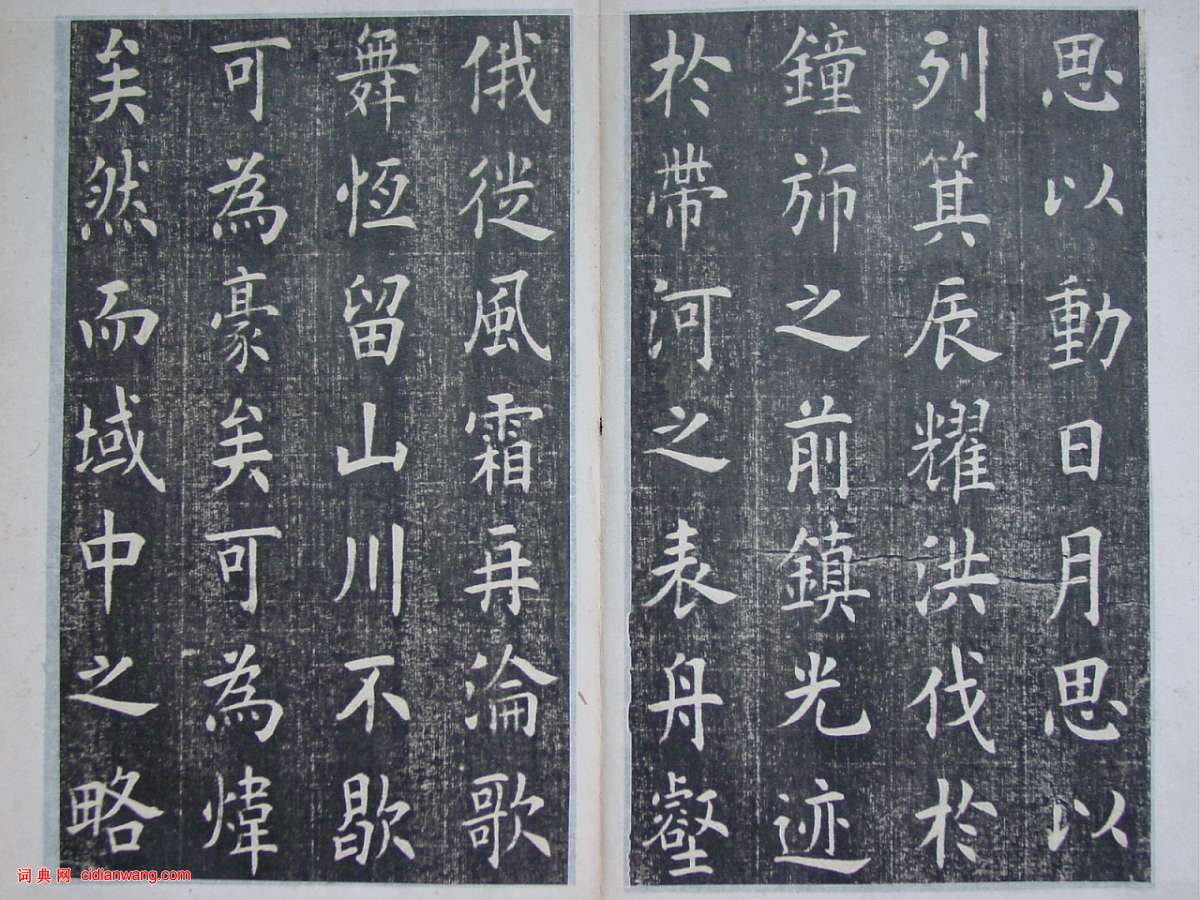 思以動日月思以
列箕辰耀洪伐於
鐘斾之前鎮光迹
於帶河之表舟壑
俄從風霜再淪歌
舞恆留山川不歇
可為豪矣可為煒
矣然而域中之略
词典网 cidianwang.com